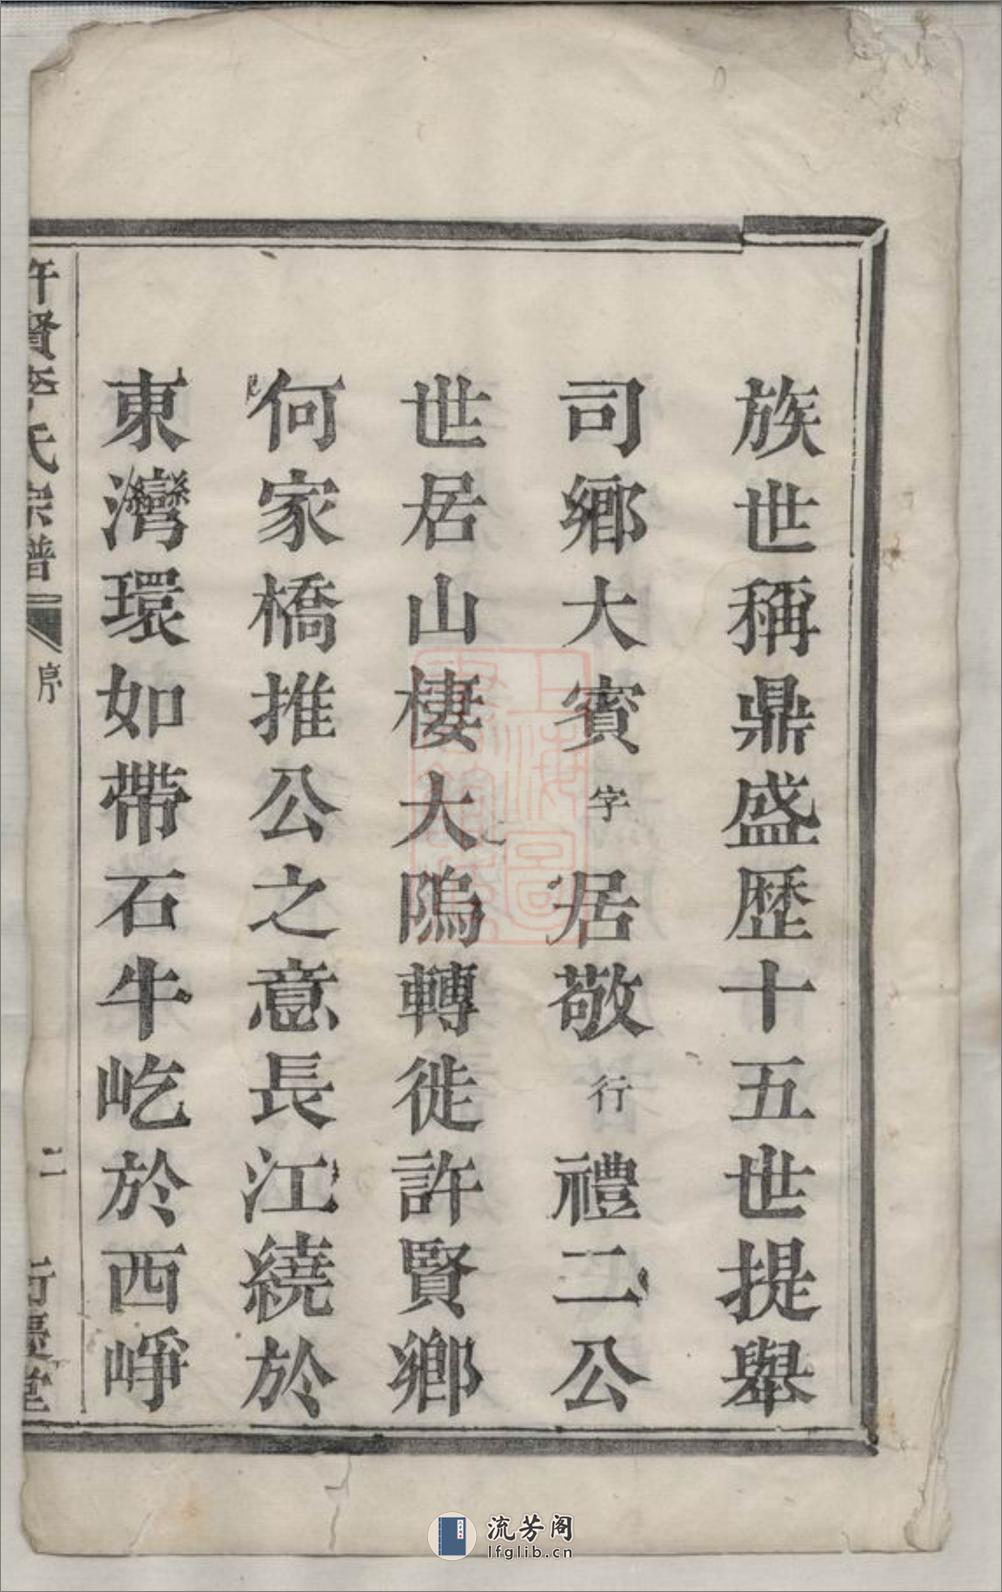 族世稱鼎盛歷十五世提舉
司鄉大賓字居敬行禮二公
世居山棲大隖轉徙許賢鄉
何家橋推公之意長江繞於
東灣環如帶石牛屹於西崢
許賢李氏宗譜
序
二
慶堂
流芳阁
lfglib.cn